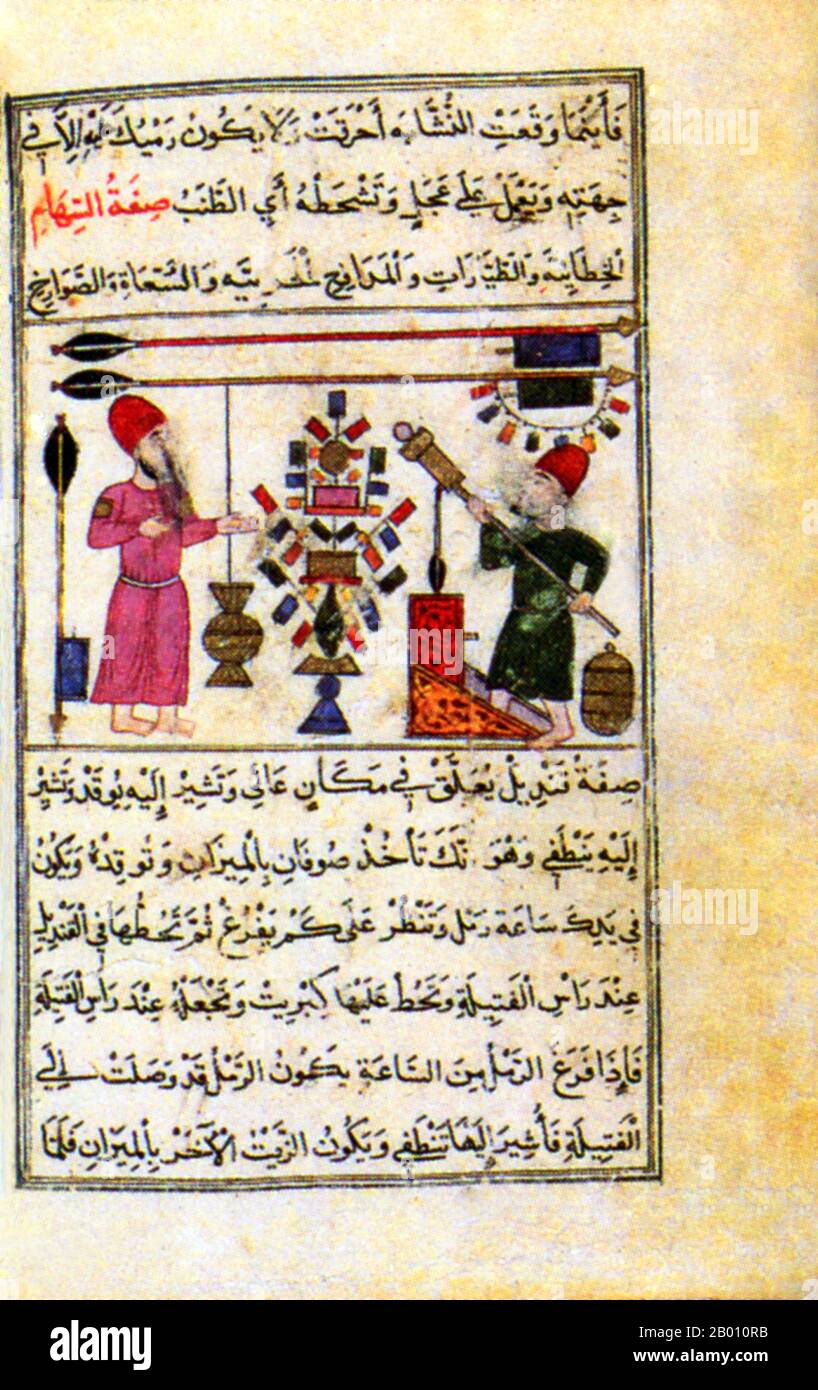 فَأَيْنَمَا وَقَعَتِ النُّشَّابَه أَحْرَقَتْ وَلَا يَكُونُ رَمْيُكَ إِلَّا فِي
جِهَتِهِ وَيَعْمَلُ عَلَى عَجَلٍ وَتَشْحَطْهُ أَيِ الطَّنَبُ صِفَةُ السِّهَامِ
الْخِطَائِيَّه وَالطَّيَّارَاتِ وَالْمَدَافِعِ وَالسُّعَاةِ وَالصَّوَارِخِ
صِفَةُ قَنْدِيلٍ يُعَلَّقُ فِي مَكَانٍ عَالِي وَتُشِيرُ إِلَيْهِ يُوقَدْ وَتُشِيرُ
إِلَيْهِ يَنْطَفِي وَهُوَ تَأْخُذْ صُوفَانِ بِالْمِيزَانِ وَتُوقِدْهُ وَيَكُونُ
فِي يَدِكَ سَاعَة رَمْل وَتَنْظُرْ عَلَى كَمْ يَفْرُغْ ثُمَّ تَحُطُّهَا فِي الْقَنْدِيلِ
عِنْدَ رَاسِ الْفَتِيلَةِ وَتَحُطْ عَلَيْهَا كِبْرِيتْ وَتَجْعَلْهُ عِنْدَ رَاسِ الْفَتِيلَةِ
فَإِذَا فَرَغَ الرَّمْلُ مِنَ السَّاعَةِ يَكُونُ الرَّمْلُ قَدْ وَصَلَتْ إِلَى
الْفَتِيلَةِ فَأُشِيرَ إِلَيْهَا تَنْطَفِي وَيَكُونُ الزَّيْتُ الْآخَرْ بِالْمِيزَانِ فَلَمَّا
alamy
alamy
alamy
alamy
Image ID: 2B010RB
www.alamy.com